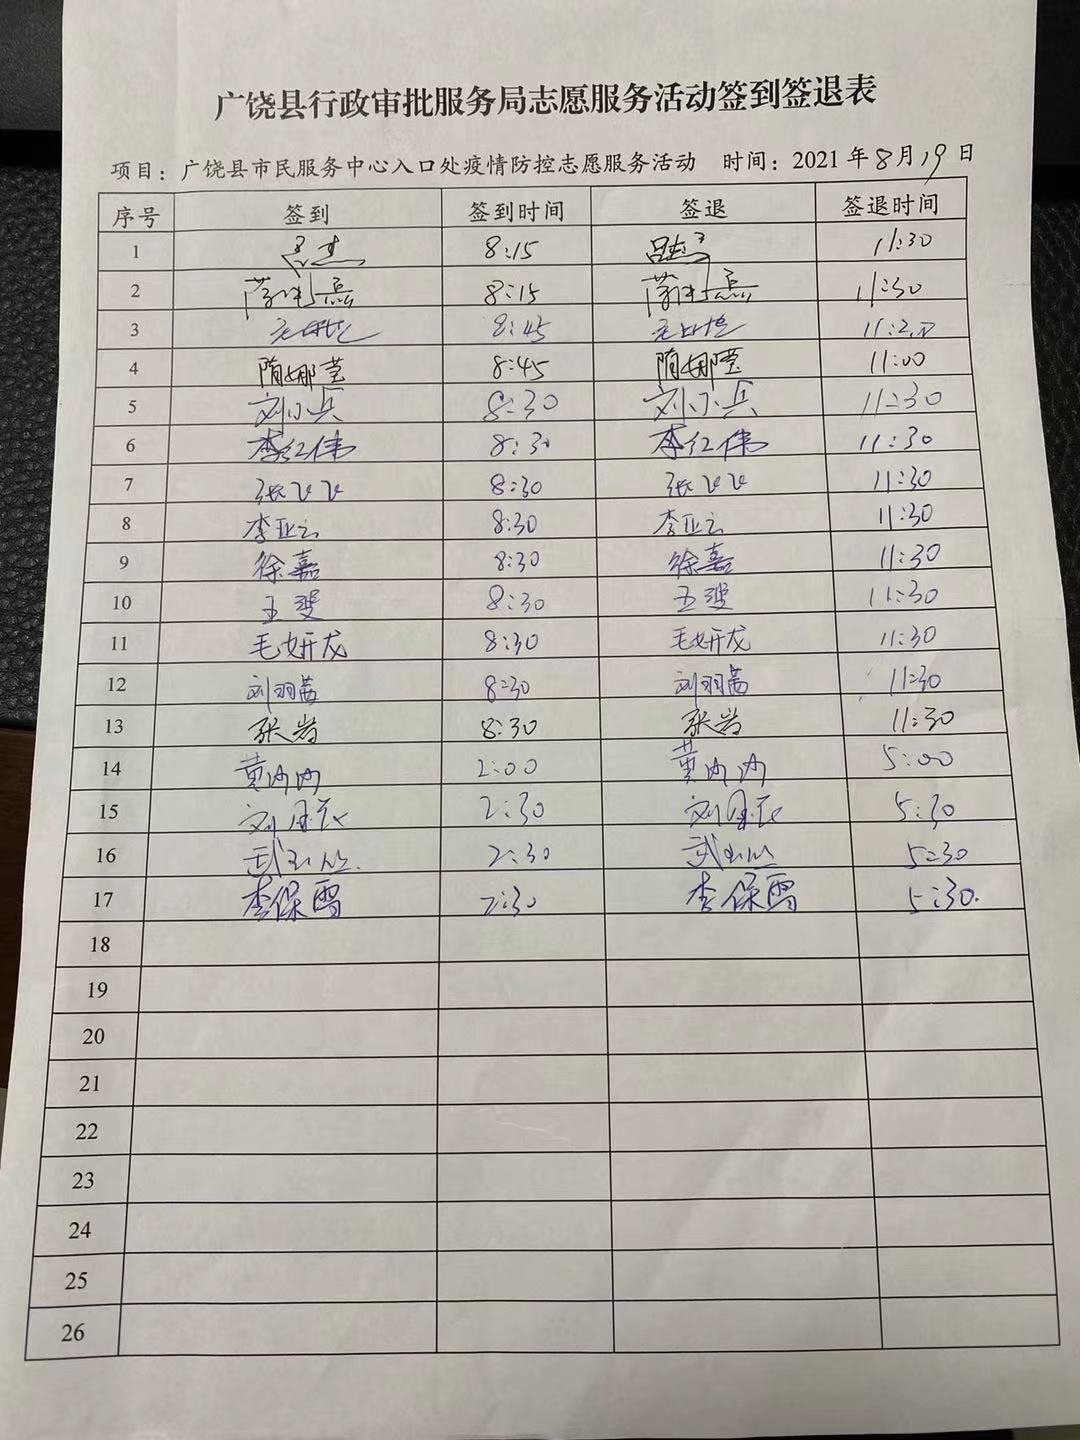 广饶县行政审批服务局志愿服务活动签到签退表
项目：广饶县市民服务中心入口处疫情防控志愿服务活动 时间：2021年8月19日
序号 签到 签到时间 签退 签退时间
1 8:15 11:30
2 8:15 11:30
3 8:45
4 隋娜莹 8:45 隋娜莹 11:00
5 刘小兵 8:30 刘小兵 11:30
6 李红伟 8:30 李红伟 11:30
7 张飞飞 8:30 张飞飞 11:30
8 李亚云 8:30 李亚云 11:30
9 徐嘉 8:30 徐嘉 11:30
10 8:30 11:30
11 毛妍龙 8:30 毛妍龙 11:30
12 刘羽茜 8:30 刘羽茜 11:30
13 张岩 8:30 张岩 11:30
14 黄 2:00 黄 5:00
15 刘 2:30 刘 5:30
16 武 2:30 武 5:30
17 李保雪 2:30 李保雪 5:30
18
19
20
21
22
23
24
25
26